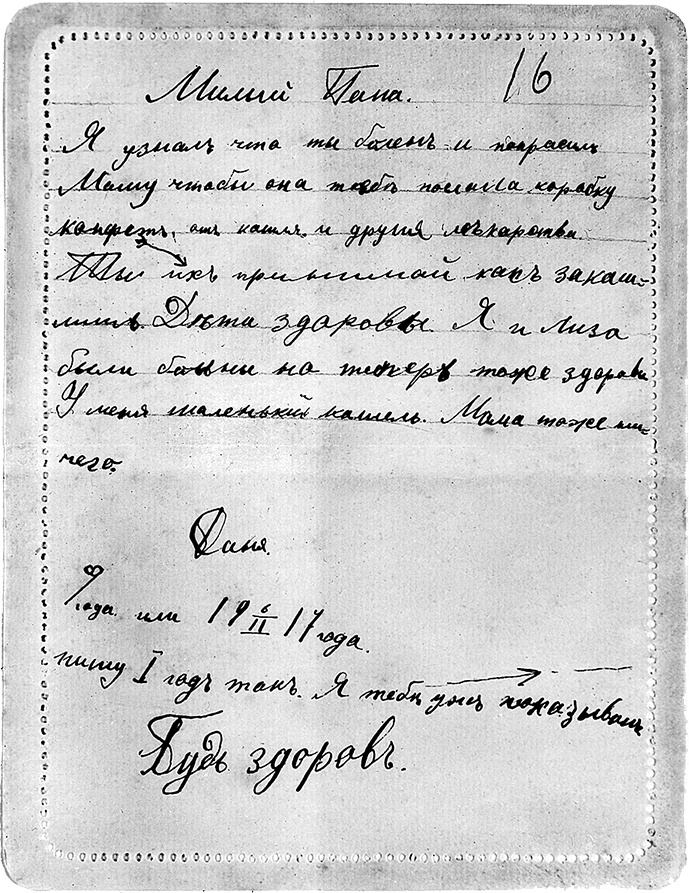 Милый Папа. 16
Я узналъ что ты боленъ и попрасилъ
Машу чтобы она тебѣ посла́ла коробку
конфетъ, отъ кашля и другия лѣкарства.
Ты ихъ принимай какъ закаш-
лишъ. Дѣти здаровы. Я и Лиза
были больны но теперь тоже здоровы
У меня маленький кашель. Мама тоже ни-
чего.
Даня.
года или 19 6/II 17 года.
пишу I годъ такъ. Я тебѣ ужъ показывалъ
Будь здоровъ.